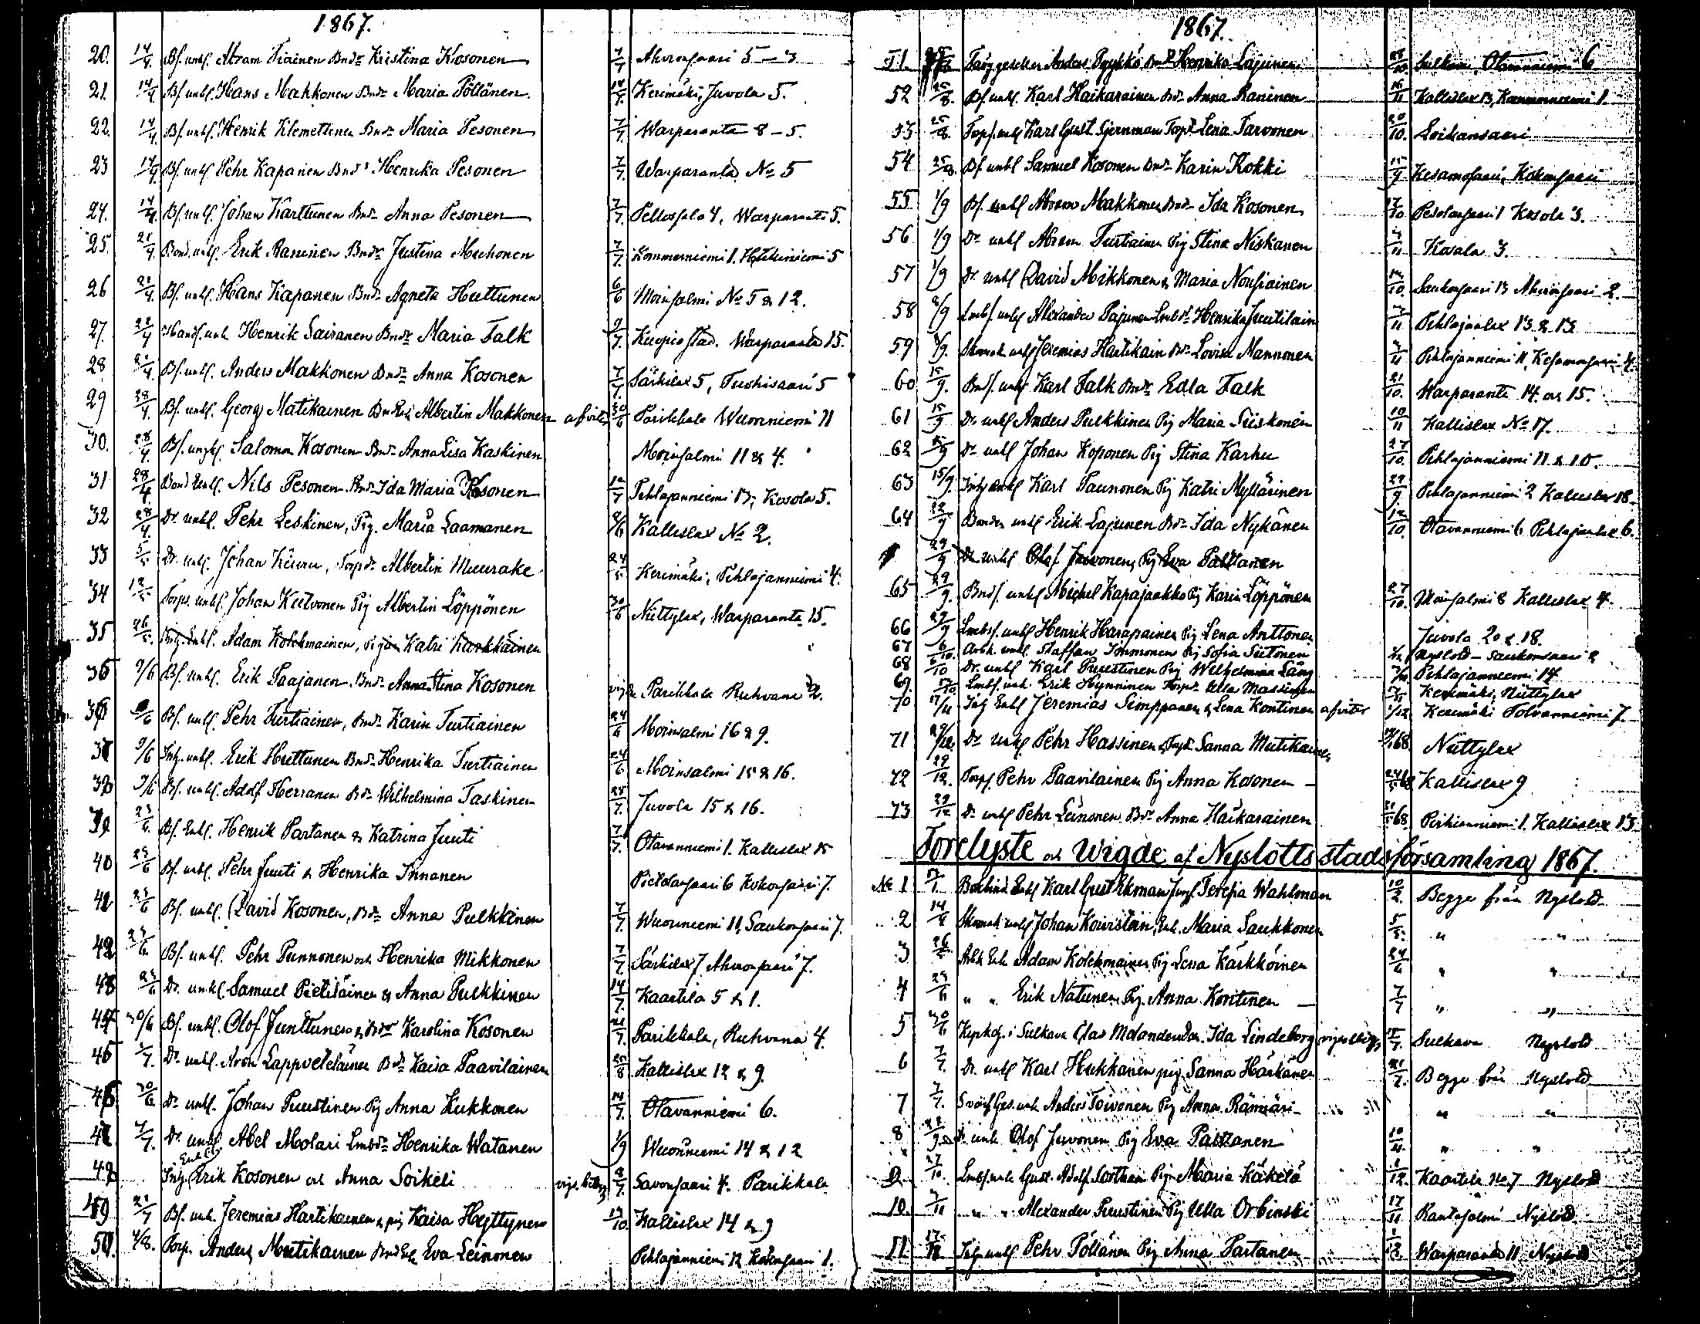 1867.
20. 14/4. Bf. unkl. Abram Tiainen Bndr Kristina Kosonen 7/7 Ahvonsaari 5 – 3
21. 14/4 Bf unkl. Hans Makkonen Bndr Maria Pöllänen. 14/7. Kerimäki, Juvola 5.
22. 14/4 Bf. unkl. Henrik Klemettinen Bndr Maria Pesonen 7/7 Warparanta 8 – 5.
23 14/4. Bf. unkl Pehr Kapanen Bndr Henrika Pesonen 7/7. Warparanta No 5
24. 14/4 Bf. unkl. Johan Karttunen Bndr Anna Pesonen 7/7. Pellossalo 4, Warparanta 5.
25. 21/4 Bond. unkl. Erik Raninen Bndr Justina Muhonen 7/7. Kommerniemi 1. 5
26 21/4. Bf. unkl. Hans Kapanen Bndr Agneta Huttunen 6/6 Moinsalmi No 5 & 12.
27. 22/4 Henrik Sairanen Bndr Maria Falk 9/7. Kuopio stad. Warparanta 15.
28 21/4. Bf. unkl. Anders Makkonen Bndr Anna Kosonen 7/7. Särkilax 5, Tuohisaari 5
29 28/4. Bf. unkl. Georg Matikainen Albertin Makkonen afvita 30/6 Parikkala Wuoriniemi 11
30. 28/4. Bf. ungkl. Salomon Kosonen Bndr Anna Lisa Kaskinen Moinsalmi 11 & 4.
31 28/4 Bond Unkl. Nils Pesonen Bndr Ida Maria Kosonen 14/7 Pihlajanniemi 13, Kosola 5.
32 28/4 Dr. unkl. Pehr Leskinen, Pig. Maria Laamanen 8/6 Kallislax No 2.
33 5/5 Dr. unkl. Johan Kiuru, Torpd. Albertin Muurake 24/5 Kerimäki, Pihlajanniemi 4.
34 12/5 Torp. unkl. Johan Kutvonen Pig Albertin Löppönen 30/6 Nüttylax, Warparanta 15.
35 26/5. Adam Kolehmainen, Katri Karkkäinen
36 9/6 Bf. unkl. Erik Paajanen, Bndr Anna Stina Kosonen Parikkala Ruhvana 2.
36 9/6 Bf. unkl. Pehr Turtiainen, Bndr Karin Turtiainen 24/6 Moinsalmi 16 & 9.
37 9/6 Inh. unkl. Erik Huttunen Bndr. Henrika Turtiainen 24/6 Moinsalmi 15 & 16.
38 9/6 Bf. unkl. Adolf Herranen Bdr Wilhelmina Taskinen 28/7. Juvola 15 & 16.
39 23/6. Bf. Enkl. Henrik Partanen & Katrina Juuti 7/7. Otavanniemi 1. Kallislax 15
40 23/6 Bf. unkl. Pehr Juuti & Henrika Innanen Pietolansaari 6 Kokonsaari 7.
41 23/6 Bf. unkl. David Kosonen, Bdr Anna Pulkkinen 7/7 Wuoriniemi 11, Saukonsaari 7.
42 23/6. Bf. unkl. Pehr Punnonen och Henrika Mikkonen 7/7. Särkilax 7 Ahvonsaari 7.
43 23/6 Dr. unkl. Samuel Pietiläinen & Anna Pulkkinen 14/7 Kaartila 5 & 1.
44 30/6 Bf. unkl. Olof Junttunen & Bndr Karolina Kosonen 21/7. Parikkala, Ruhvana 4.
45 7/7. Dr. unkl. Aron Lappveteläinen Bdr Kaisa Paavilainen 25/8 Kallislax 12 & 9.
46 30/6 Dr unkl. Johan Puustinen Pig Anna Kukkonen 14/7. Otavanniemi 6.
47 7/7. Dr. unkl Abel Molari Lmbdr Henrika Watanen 1/9 Wuoriniemi 14 & 12
48 Inh. Enkl. Erik Kosonen och Anna Soikeli 8/7. Savonsaari 4. Parikkala
49 21/7 Bf. unk. Jeremias Hartikainen & pig Kaisa Hyttynen 13/10 Kallislax 14 & 9
50 4/8. Torp. Anders Mutikainen Eva Leinonen Pihlajanniemi 12 Kokonsaari 1.
1867.
51. Anders Pyykkö Bndr Henrika Lajunen Sulkava, Otavanniemi 6
52 25/8 Bf. unkl. Karl Haikarainen Bdr Anna Raninen Kallislax 13, Kommerniemi 1.
53 25/8. Torp. unkl Karl Gust. Bjernman Torpd Lena Tarvonen 20/10. Loikansaari
54 25/8 Bf unkl Samuel Kosonen Bndr Karin Kokki 15/9 Kesamosaari, Kokonsaari
55 1/9 Bf. unkl Abram Makkonen Bndr Ida Kosonen 17/10 Pietolansaari 1 Kosola 3.
56 1/9 Dr unkl Abram Turtiainen Pig Stina Niskanen Kosola 3.
57 1/9 Dr unkl David Mikkonen & Maria Nousiainen Saukonsaari 13 Ahvonsaari 2.
58 8/9 Lmbf. unkl Alexander Pajunen Lmbdr Henrika Juutilain Pihlajalax 13 & 13
59 8/9. unkl Jeremias Hartikain Bdr Lovisa Mannonen Pihlajanniemi 11, Kesamosaari 4.
60 15/9. Bndf. unkl Karl Falk Bndr Edla Falk 21/10. Warparanta 14 och 15.
61 15/9 Dr. unkl Anders Pulkkinen Pig Maria Siiskonen 10/11 Kallislax No 17.
62 15/9 Dr unkl Johan Koponen Pig Stina Karhu 27/10. Pihlajanniemi 11 & 10.
63 15/9. Inh. Enkl Karl Saunonen Pig Katri Myllärinen 29/9 Pihlajanniemi 2 Kallislax 18.
64 22/9 Bonde unkl Erik Lajunen Bdr Ida Nykänen 12/10 Otavanniemi 6 Pihlajalax 6.
29/9 Dr. unkl Olof Juvonen, Pig Eva Partanen
65 29/9. Bndf. unkl Michel Kapajaakko Pig Karin Löppönen 27/10. Moinsalmi 8 Kallislax 4.
66 29/9 Lmbf. unkl Henrik Harapainen Pig Lena Anttonen Juvola 20 & 18.
67 6/10. Arbk. unkl Staffan Ihmonen Pig Sofia Siitonen Nyslott – Saukonsaari 2
68 6/10 Dr. unkl Karl Puustinen Pig Wilhelmina Lång Pihlajanniemi 14
69. Lmbf. unk. Erik Hynninen Torpd. Ulla Massinen Kerimäki, Nüttylax
70 17/11 Inh Enkl Jeremias Simppanen & Lena Kontinen afvita 1/12 Kerimäki Tolvanniemi 7.
71 Dr unkl Pehr Hassinen & Torpd Sanna Mutikainen 68 Nüttylax
72 29/12. Torp. Pehr Paavilainen Pig Anna Kosonen 68 Kallislax 9
73 29/12 Dr unkl Pehr Leinonen Bdr Anna Haikarainen 68 Pirhianniemi 1. Kallislax 13
Förelyste och Wigde af Nyslotts stadsförsamling 1867.
No 1 Enkl Karl Gust. Ekman Jungf Teresia Wahlman 10/2. Begge från Nyslott
2 14/4 unkl Johan Kouvistoin, Enk. Maria Saukkonen 5/5. " "
3 26/5 Arbk Enk. Adam Kolehmainen Pig Lena Kärkkäinen 24/6 " "
4 23/6 " " Erik Natunen Pig. Anna Kontinen 7/7 " "
5 30/6 i Sulkava Clas Molander Ida Lindeborg Sulkava Nyslott
6 7/7. Dr. unkl Karl Hukkanen pig Sanna Härkänen 21/7. Begge från Nyslott
7 7/7. unk. Anders Toivonen Pig Anna Rämäri " "
8 22/9 Dr unk Olof Juvonen Pig Eva Partanen " "
9. 27/10. Lmbf. unk Gust. Adolf Pig Maria Käkelä 12. Kaartila No 7 Nyslott
10. 3/11 " " Alexander Puustinen Pig Ulla Orbinski 17/11 Rantasalmi – Nyslott
11 Inh unkl Pehr Pöllänen Pig Anna Partanen 1/12. Warparanta 11 Nyslott